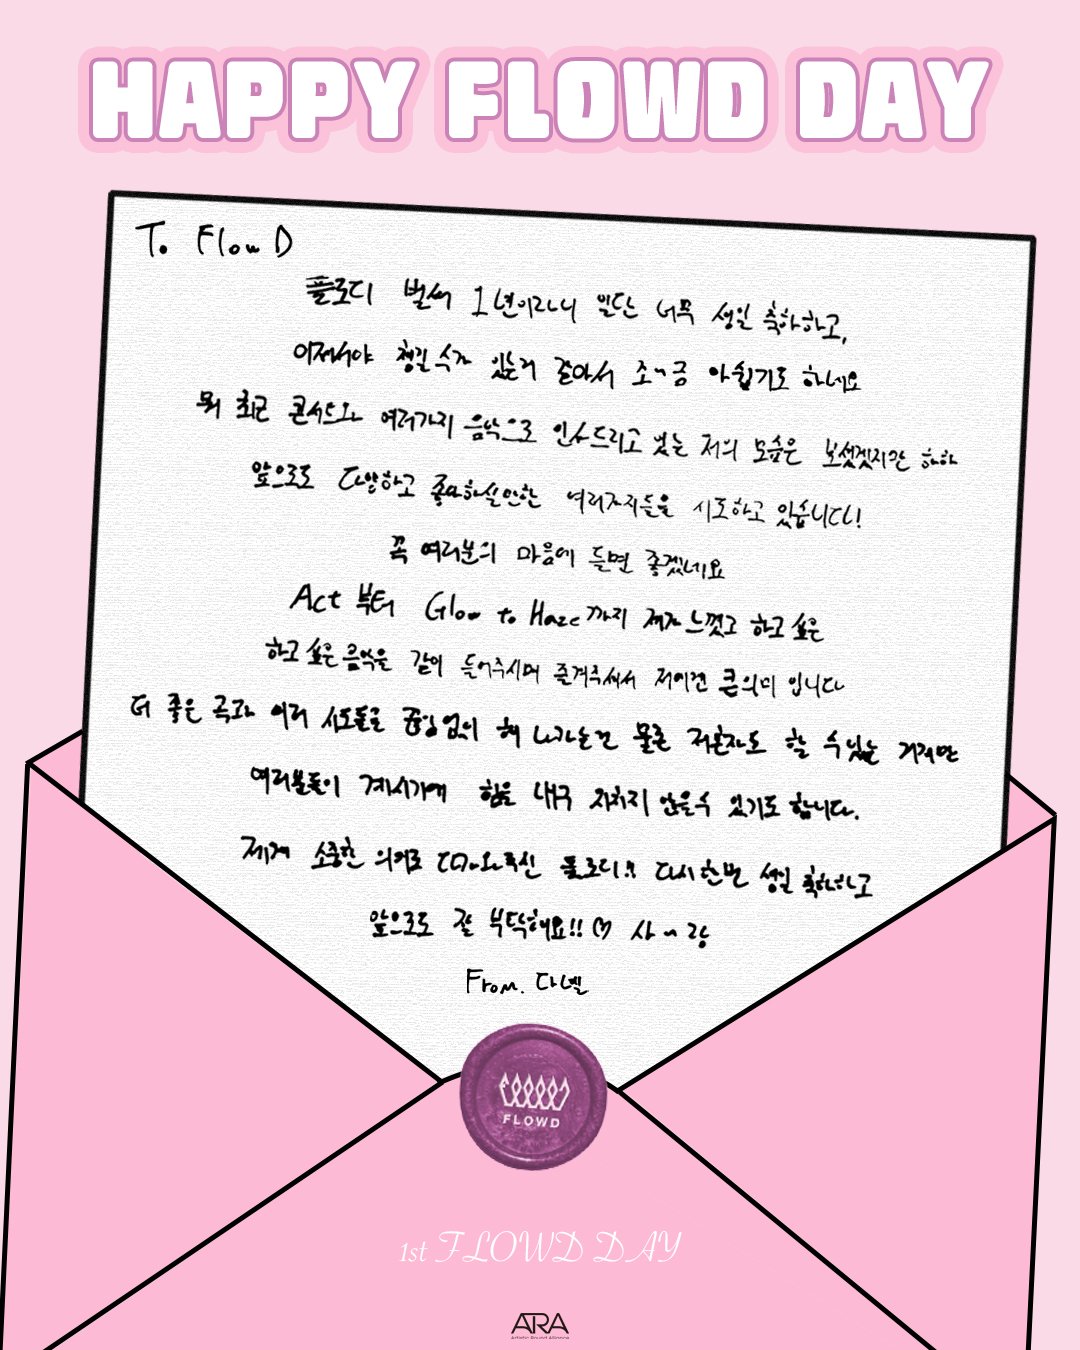 HAPPY FLOWD DAY
To FlowD
플로디 벌써 1년이라니 일단 너무 생일 축하하고,
이제서야 챙길 수가 있는거 같아서 조~금 아쉽기도 하네요
뭐 최근 콘서트와 여러가지 음악으로 인사드리고 있는 저의 모습은 보셨겠지만 하하
앞으로도 다양하고 좋아하실만한 여러가지들을 시도하고 있습니다!
꼭 여러분의 마음에 들면 좋겠네요
Act 부터 Glow to Haze 까지 제가 느꼈고 하고 싶은
하고 싶은 음악을 같이 들어주시며 즐겨주셔서 저에겐 큰 의미 입니다
더 좋은 곡과 여러 시도들로 끊임 없이 해 나가는건 물론 저혼자도 할 수 있는 거지만
여러분들이 계시기에 힘을 내구 지치지 않을 수 있기도 합니다.
제게 소중한 의미로 다가와주신 플로디!! 다시 한번 생일 축하하고
앞으로도 잘 부탁해요!! ♡ 사~랑
From. 다넬
FLOWD
1st FLOWD DAY
ARA
Artistic Round Alliance